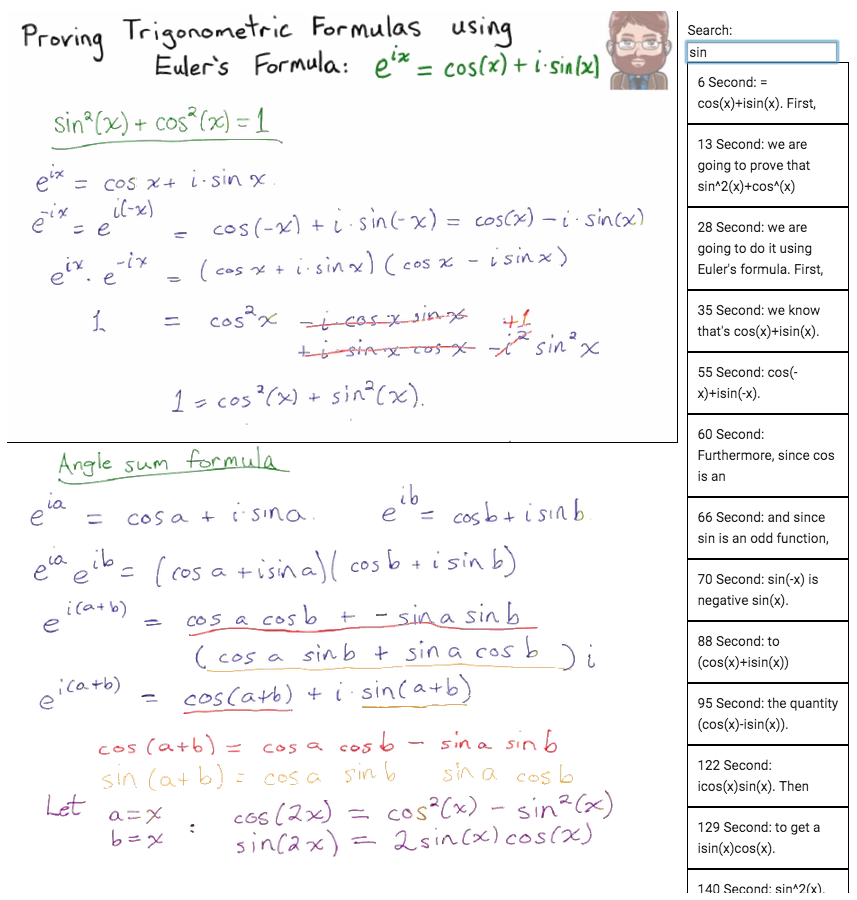 Proving Trigonometric Formulas using
Euler's Formula: e^{ix} = cos(x) + i·sin(x)
sin²(x) + cos²(x) = 1
e^{ix} = cos x + i·sin x
e^{-ix} = e^{i(-x)} = cos(-x) + i·sin(-x) = cos(x) - i·sin(x)
e^{ix}·e^{-ix} = (cos x + i·sin x)(cos x - i sin x)
1 = cos²x - i·cos x sin x +1
+ i·sin x cos x - i² sin²x
1 = cos²(x) + sin²(x).
Angle sum formula
e^{ia} = cos a + i·sin a. e^{ib} = cos b + i sin b
e^{ia} e^{ib} = (cos a + i sin a)(cos b + i sin b)
e^{i(a+b)} = cos a cos b + - sin a sin b
(cos a sin b + sin a cos b) i
e^{i(a+b)} = cos(a+b) + i·sin(a+b)
cos(a+b) = cos a cos b - sin a sin b
sin(a+b) = cos a sin b sin a cos b
Let a=x : cos(2x) = cos²(x) - sin²(x)
b=x sin(2x) = 2sin(x)cos(x)
Search:
sin
6 Second: =
cos(x)+isin(x). First,
13 Second: we are
going to prove that
sin^2(x)+cos^(x)
28 Second: we are
going to do it using
Euler's formula. First,
35 Second: we know
that's cos(x)+isin(x).
55 Second: cos(-
x)+isin(-x).
60 Second:
Furthermore, since cos
is an
66 Second: and since
sin is an odd function,
70 Second: sin(-x) is
negative sin(x).
88 Second: to
(cos(x)+isin(x))
95 Second: the quantity
(cos(x)-isin(x)).
122 Second:
icos(x)sin(x). Then
129 Second: to get a
isin(x)cos(x).
140 Second: sin^2(x).